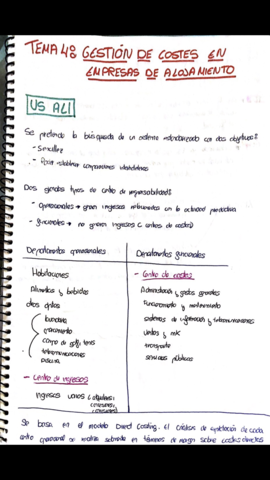 TEMA 48 GESTIÓN DE COSTES EN
EMPRESAS DE ALOJAMIENTO
USALI
Se pretende la búsqueda de un sistema estandarizado con dos objetivos:
- Sencillez
- Poder establecer comparaciones interhoteleras
Dos grandes tipos de centro de responsabilidad:
- operacionales → generan ingresos con la actividad productiva
- funcionales → no generan ingresos (centros de costes)
Departamentos operacionales
Departamentos funcionales
Habitaciones
Alimentos y bebidas
otros dptos
lavandería
campo de golf, tenis
telecomunicaciones
piscina
- Centro de ingresos
ingresos varios (alquileres
- Centro de costes
Administración y gastos generales
Funcionamiento y mantenimiento
sistemas de información y telecomunicaciones
ventas y mk
transporte
servicios públicos
Se basa en el modelo Direct Costing. El criterio de explotación de cada
centro operacional se analiza en términos de margen sobre costes directos